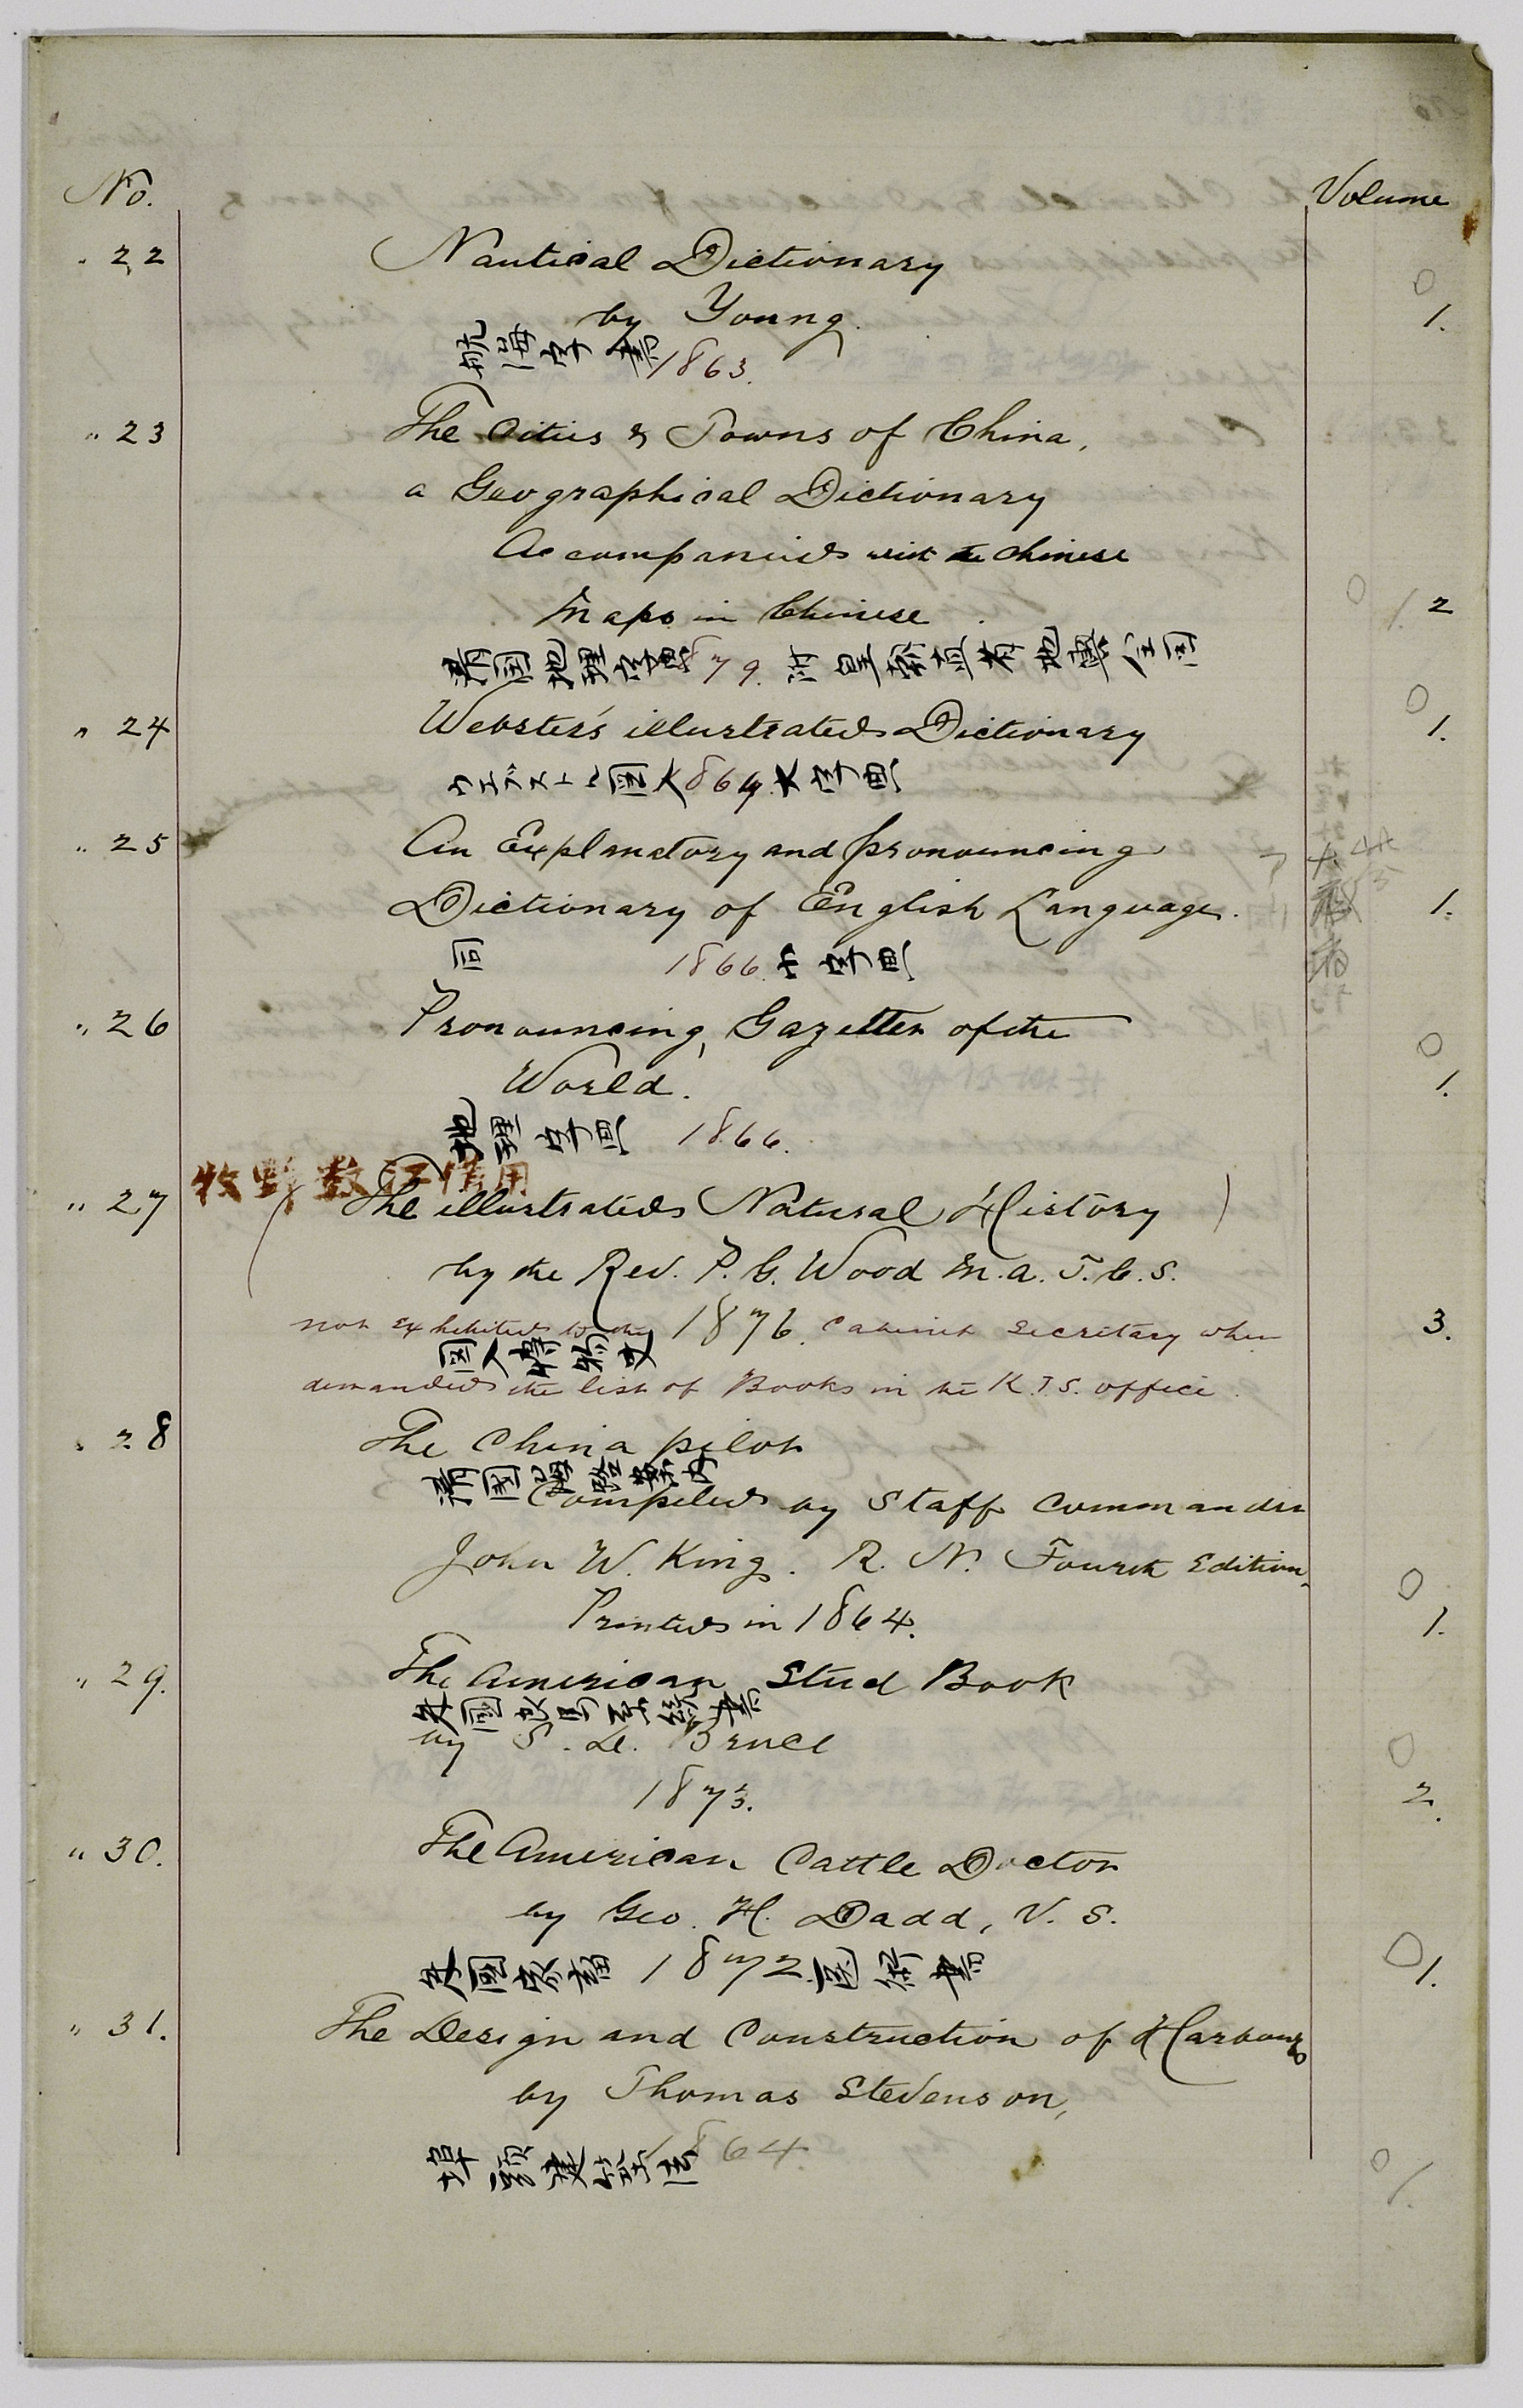 No. Volume
" 22 Nautical Dictionary
by Young. 1.
航海字書 1863.
" 23 The Cities & Towns of China,
a Geographical Dictionary
Accompanied with the Chinese
Maps in Chinese. 2
清国地理字書 1879. 附 皇朝直省地輿全図
" 24 Webster's illustrated Dictionary 1.
ウエブストル図入 1864. 大字典
" 25 An Explanatory and pronouncing
Dictionary of English Language. 1.
同 1866. 中字典
" 26 Pronouncing Gazetteer of the
World. 1.
地理字典 1866.
牧野数江借用
" 27 (The illustrated Natural History)
by the Rev. P. G. Wood M.a. F.L.S.
not exhibited to the 1876. Cabinet Secretary when 3.
図入博物史
demanded the list of Books in the K.T.S. office.
" 28 The China pilot
清国海路案内
Compiled by Staff Commander
John W. King. R. N. Fourth Edition,
Printed in 1864. 1.
" 29. The American Stud Book
米国牧馬系統書
by S. D. Bruce
1873. 2.
" 30. The American Cattle Doctor
by Geo. H. Dadd, V. S.
米国家畜 1872. 医術書 1.
" 31. The Design and Construction of Harbours
by Thomas Stevenson,
埠頭建築書 1864. 1.